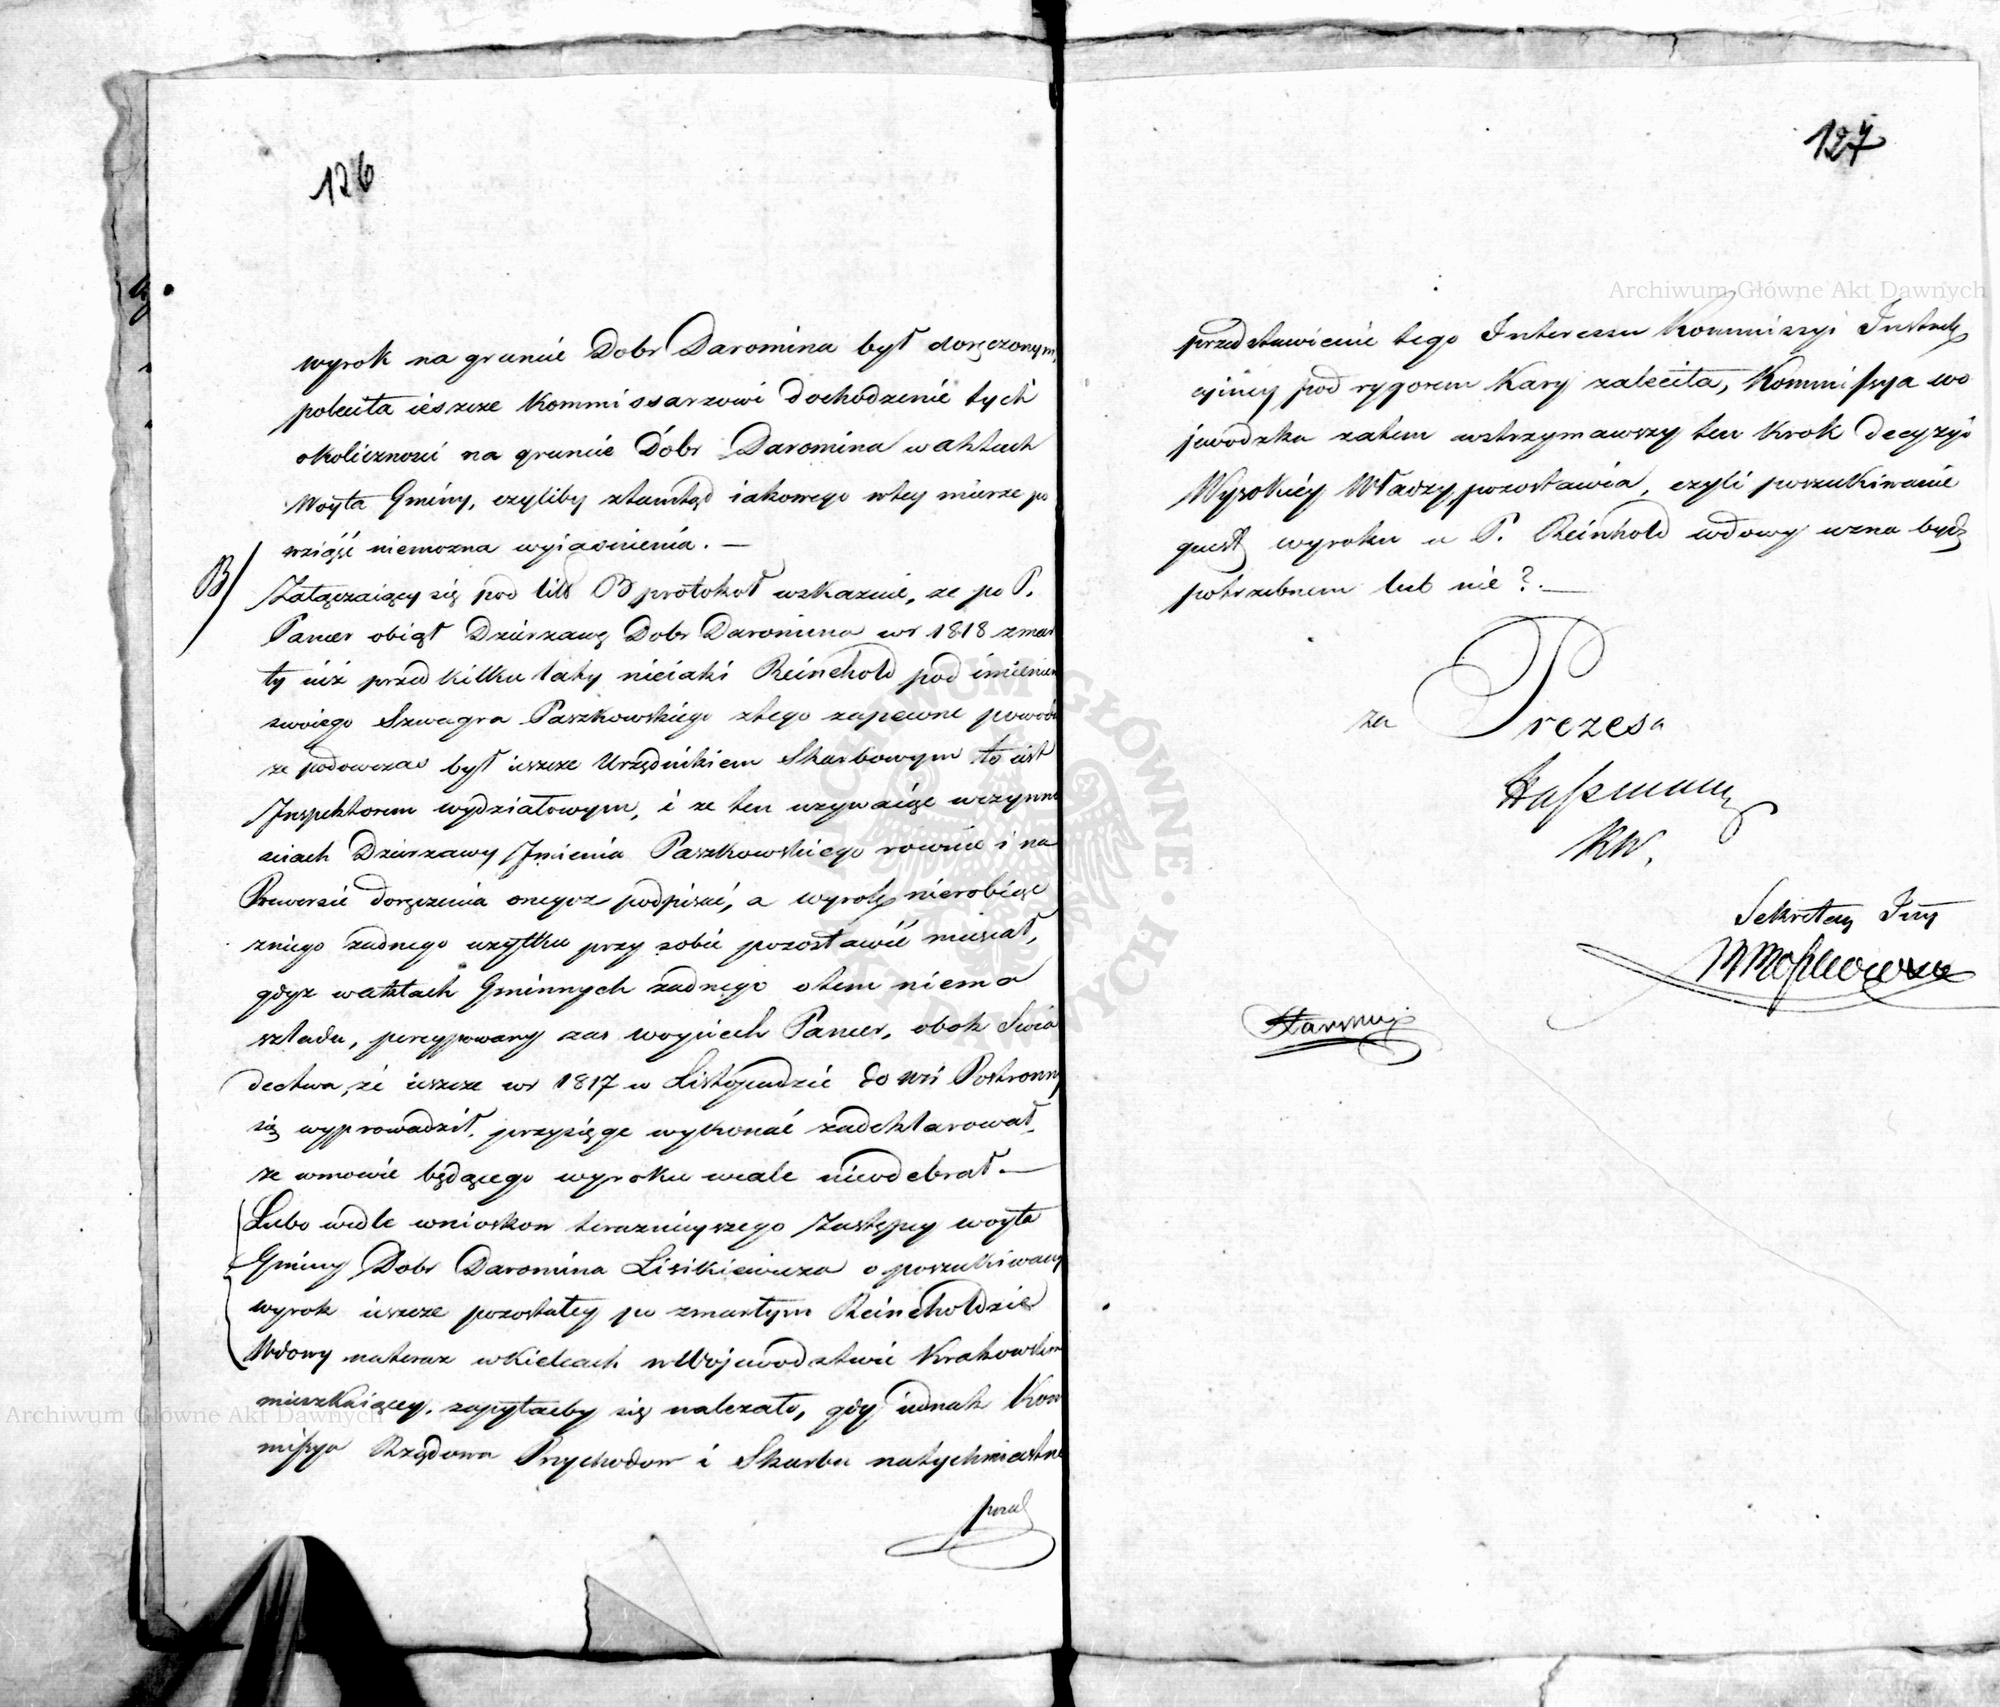 126
wyrok na gruncie Dobr Daromina był doręczonym,
poleciła ieszcze Kommissarzowi dochodzenie tych
okoliczności na gruncie Dóbr Daromina w aktach
Woyta Gminy, czyliby ztamtąd iakowego wtey mierze po
wziąść niemozna wyiasnienia. —
B/
Załączaiący się pod lit. B protokoł wskazuie, ze po P.
Pancer obiął Dzierzawę Dobr Daromina w r 1818 zmar
ły iuż przed kilku laty nieiaki Reinchold pod imieniem
swoiego Szwagra Paszkowskiego ztego zapewne powodu
ze podowczas był ieszcze Urzędnikiem Skarbowym to iest
Inspektorem wydziałowym, i ze ten uzywaiąc wczynno
sciach Dzierzawy Imienia Paszkowskiego rownie i na
Rewersie doręczenia onegoz podpisać, a wyrok nierobiąc
zniego zadnego uzytku przy sobie pozostawić musiał,
gdyz waktach Gminnych zadnego otem niema
sladu, zas Woyciech Pancer, obok Swia
dectwa, że ieszcze w r 1817 w Listopadzie do wsi Postronny
się wyprowadził, przysięgę wykonać zadeklarował,
ze wmowie będącego wyroku wcale nieodebrał. —
Lubo wedle wnioskow terazniejszego Zastępcy woyta
Gminy Dobr Daromina Lisikiewicza o poszukiwany
wyrok ieszcze pozostałey po zmarłym Reincholdzie
Wdowy nateraz wKielcach wWojewodztwie Krakowskim
mieszkaiącey, zapytaćby się nalezało, gdy iednak Kom
missya Rządowa Przychodow i Skarbu natychmiastne
przed
127
Archiwum Główne Akt Dawnych
przedstawienie tego Interessu Kommissyi Instruk
cyiney pod rygorem Kary zaleciła, Kommissya wo
jewodzka zatem wstrzymawszy ten Krok decyzyi
Wysokiéy Władzy pozostawia, czyli poszukiwanie
quest. wyroku u P. Reinhold wdowy uzna bydź
potrzebnem lub nie? —
za Prezesa
Hassmann
KW.
Sekretarz Jny
Archiwum Główne Akt Dawnych
ARCHIWUM GŁÓWNE AKT DAWNYCH